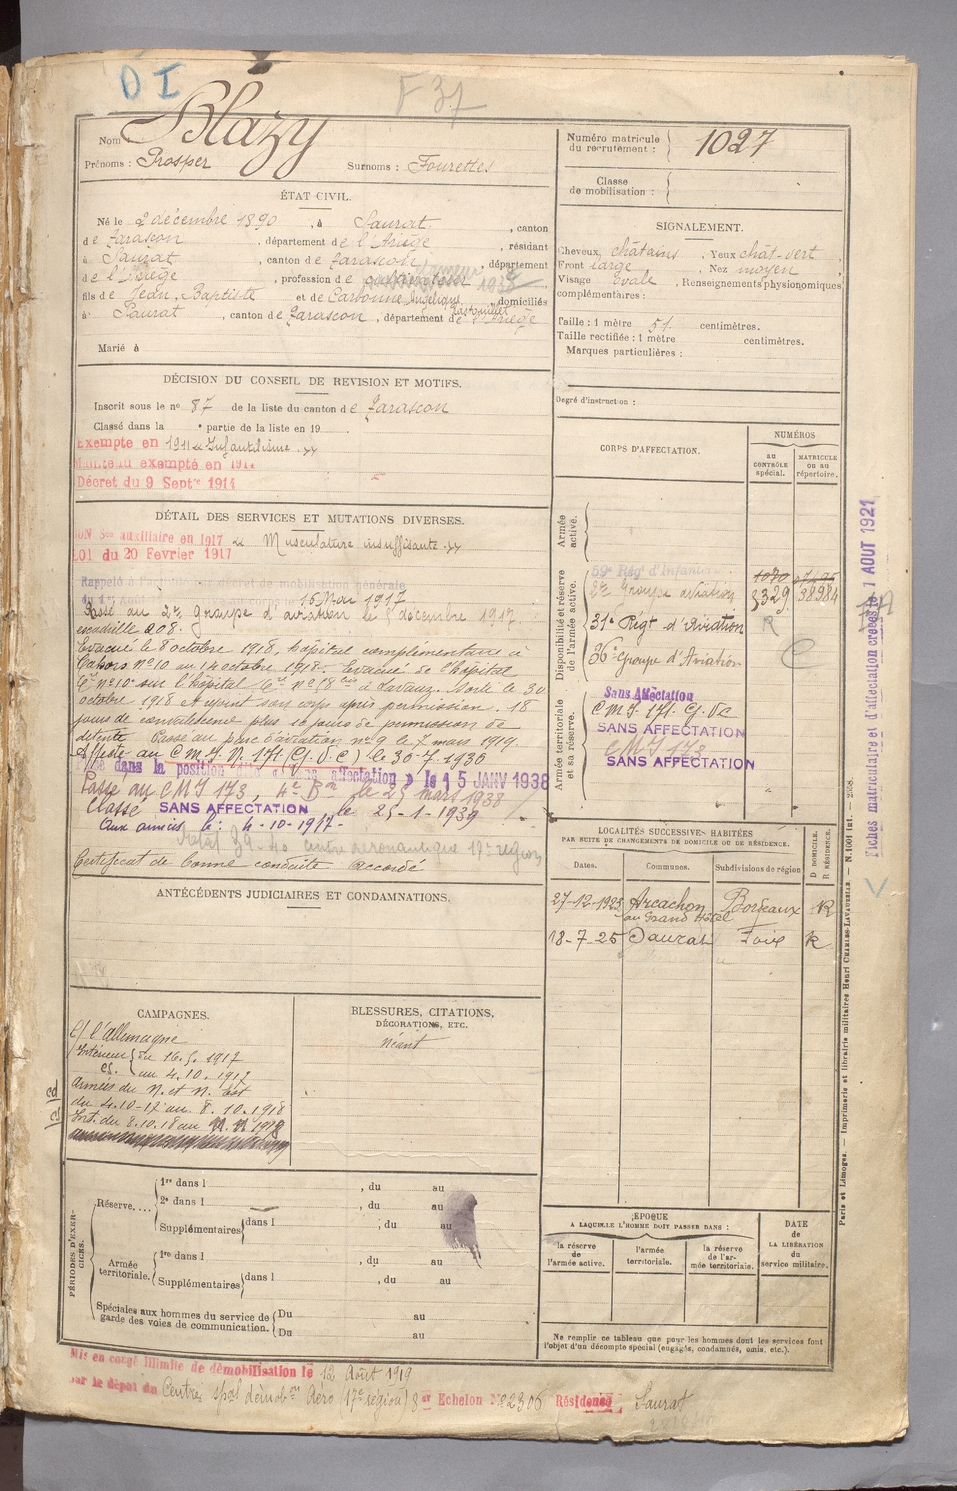 D I
F 37
Nom Blazy
Prénoms : Prosper Surnoms : Fourettes
Numéro matricule du recrutement : 1027
Classe de mobilisation :
ÉTAT CIVIL.
Né le 2 décembre 1890, à Saurat, canton
de Tarascon, département de l'Ariège, résidant
à Saurat, canton de Tarascon, département
de l'Ariège, profession de 1938
fils de Jean, Baptiste et de Carbonne Angélique domiciliés
à Saurat, canton de Tarascon, département de l'Ariège
Marié à
SIGNALEMENT.
Cheveux châtains, Yeux chât-vert,
Front large, Nez moyen,
Visage ovale, Renseignements physionomiques
complémentaires :
Taille : 1 mètre 51 centimètres.
Taille rectifiée : 1 mètre centimètres.
Marques particulières :
Degré d'instruction :
DÉCISION DU CONSEIL DE REVISION ET MOTIFS.
Inscrit sous le no 87 de la liste du canton de Tarascon
Classé dans la e partie de la liste en 19
Exempté en 1911 Infantilisme
Maintenu exempté en 1914
Décret du 9 Septre 1914
DÉTAIL DES SERVICES ET MUTATIONS DIVERSES.
BON Sce auxiliaire en 1917 Musculature insuffisante
LOI du 20 Fevrier 1917
Rappelé à l'activité par décret de mobilisation générale
du 1er Août 16 Mai 1917
Passé au 2e groupe d'aviation le 5 décembre 1917.
escadrille 208.
Evacué le 8 octobre 1918, hôpital complémentaire à
Cahors No 10 au 14 octobre 1918. Evacué de l'hôpital
Cre No 10 sur l'hôpital Cre No 58 bis à Lavaur. Sorti le 30
octobre 1918. A rejoint son corps après permission. 18
jours de convalescence plus 10 jours de permission de
détente Passé au parc d'aviation no 9 le 7 mars 1919.
Affecté au C M J. No 171. (G. V. C) le 30-7-1930
dans la position dite « Sans affectation » le 15 JANV 1938
Passé au CMJ 173, 4e Bon le 25 mars 1938
Classé SANS AFFECTATION le 25-1-1939
Aux armées le : 4-10-1917-
39-40 centre aéronautique 17e région
Certificat de bonne conduite accordé
CORPS D'AFFECTATION.
NUMÉROS
AU CONTRÔLE spécial.
MATRICULE OU AU répertoire.
Armée active.
Disponibilité et réserve de l'armée active.
59e Rég d'Infanterie 1070
2e Groupe aviation 5329 38984
31e Régt d'Aviation R
36e Groupe d'Aviation C
Armée territoriale et sa réserve.
Sans Affectation
C M J. 171. G. V. C
SANS AFFECTATION
CMJ 173
SANS AFFECTATION
Fiches matriculaire et d'affectation créées le 1 AOUT 1921
ANTÉCÉDENTS JUDICIAIRES ET CONDAMNATIONS.
LOCALITÉS SUCCESSIVES HABITÉES
PAR SUITE DE CHANGEMENTS DE DOMICILE OU DE RÉSIDENCE.
Dates. Communes. Subdivisions de région D DOMICILE. R RÉSIDENCE.
27-12-1923 Arcachon au Grand Hôtel Bordeaux R
18-7-25 Saurat Foix R
CAMPAGNES.
C/ l'allemagne
Intérieur du 16.5.1917
au 4.10.1917
Armées du N. et N. Est
du 4.10-17 au 8.10.1918
Int. du 8.10.18 au
BLESSURES, CITATIONS,
DÉCORATIONS, ETC.
Néant
PÉRIODES D'EXERCICES.
Réserve....
1re dans l , du au
2e dans l , du au
Supplémentaires dans l , du au
Armée territoriale.
1re dans l , du au
Supplémentaires dans l , du au
Spéciales aux hommes du service de garde des voies de communication.
Du au
Du au
ÉPOQUE
A LAQUELLE L'HOMME DOIT PASSER DANS :
la réserve de l'armée active.
l'armée territoriale.
la réserve de l'armée territoriale.
DATE de LA LIBÉRATION du service militaire.
Ne remplir ce tableau que pour les hommes dont les services font
l'objet d'un décompte spécial (engagés, condamnés, omis, etc.).
Paris et Limoges. — Imprimerie et librairie militaires Henri CHARLES-LAVAUZELLE.
Mis en congé illimité de démobilisation le 12 Août 1919
par le dépôt du Centre spal démobon Aéro 17e région 8e Echelon No 2306 Résidence Saurat